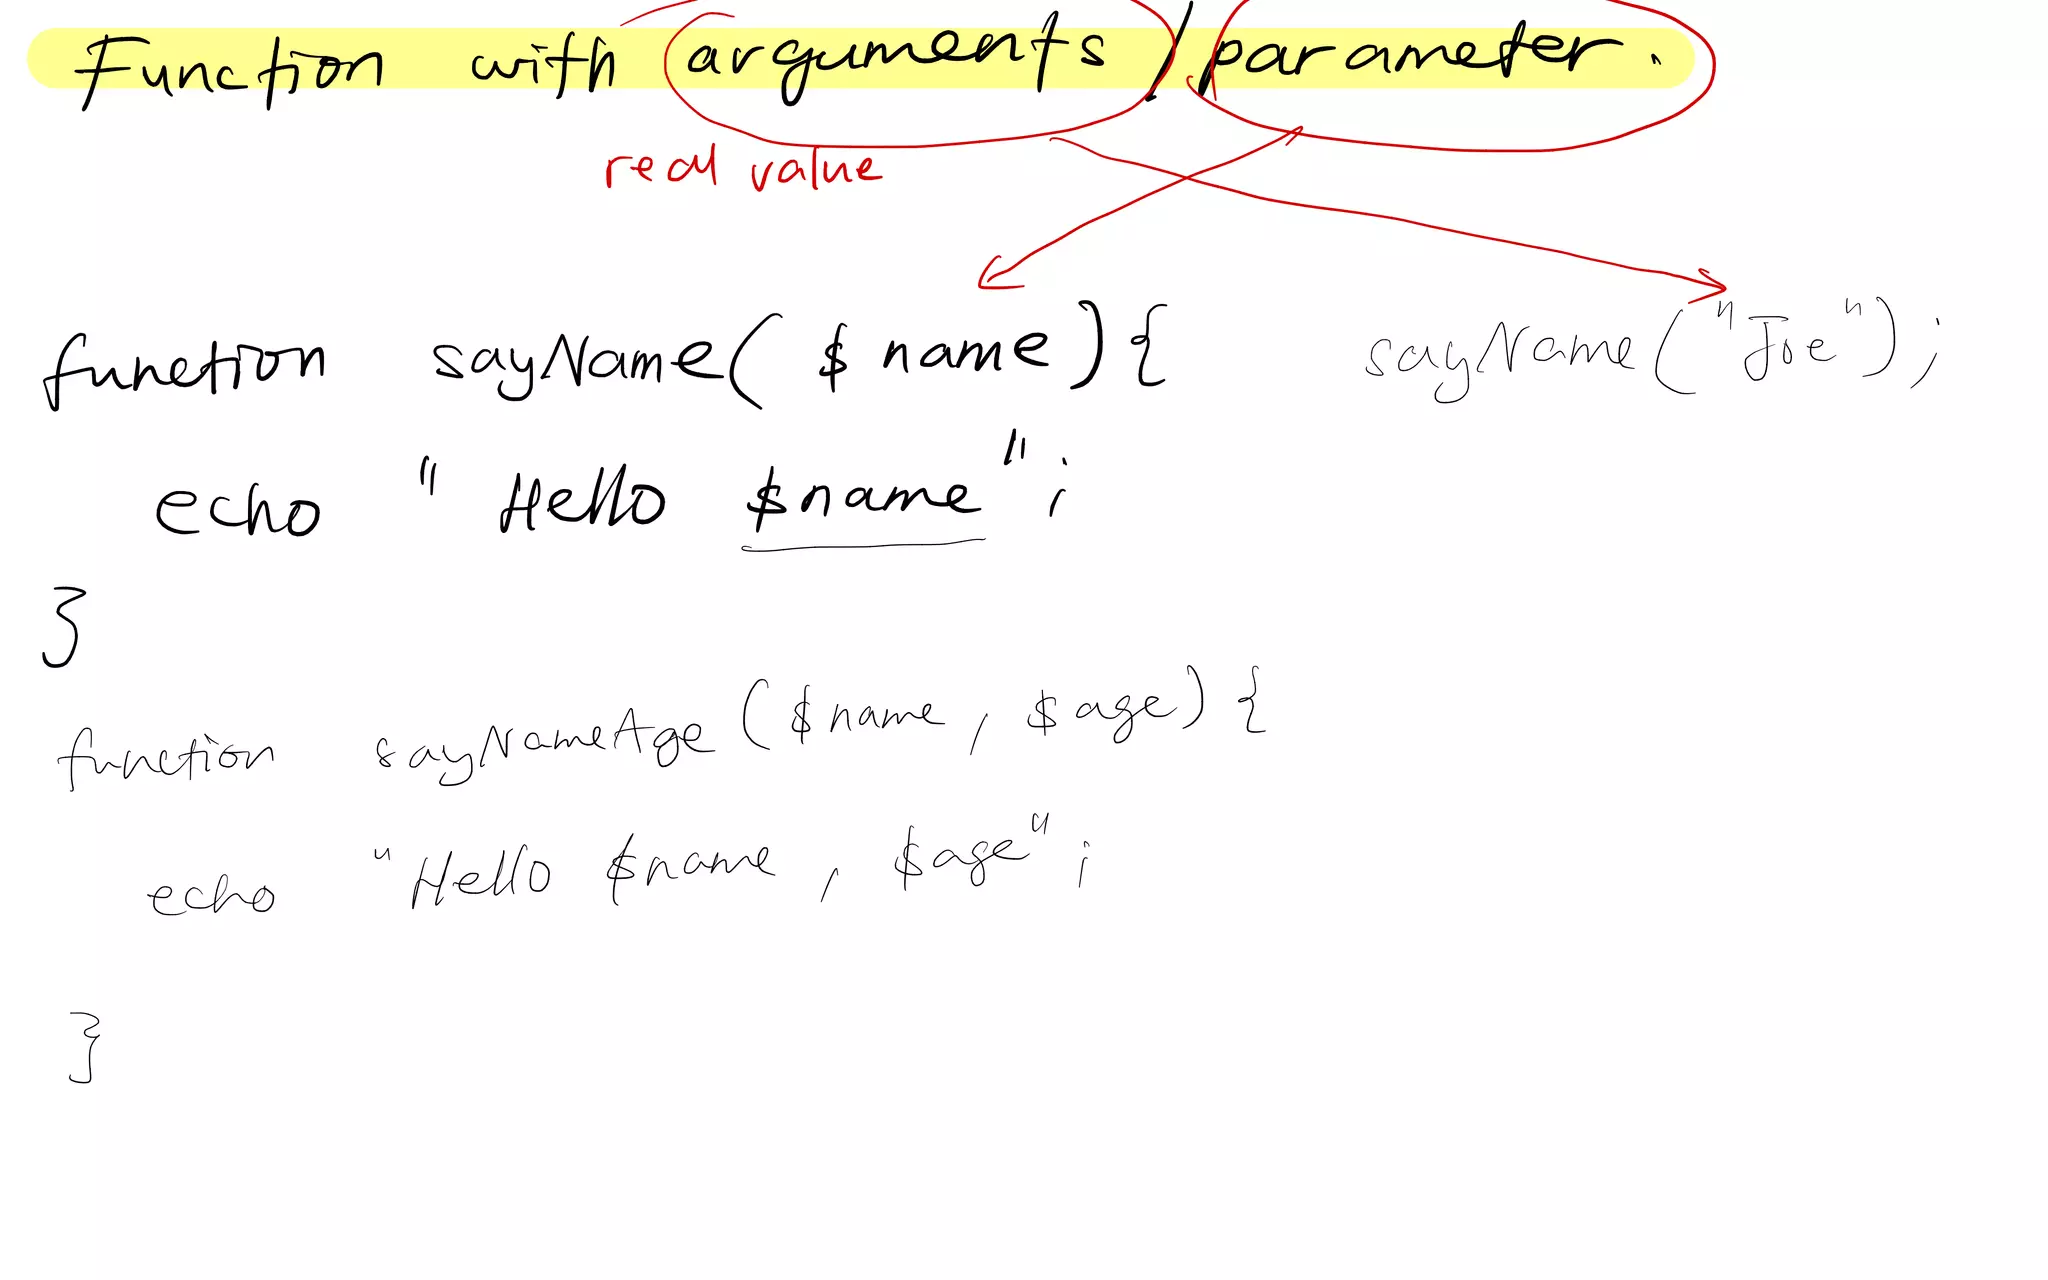 Function with arguments / parameter.
real value
function sayName( $name){ sayName("Joe");
echo "Hello $name";
}
function sayNameAge($name, $age){
echo "Hello $name, $age";
}